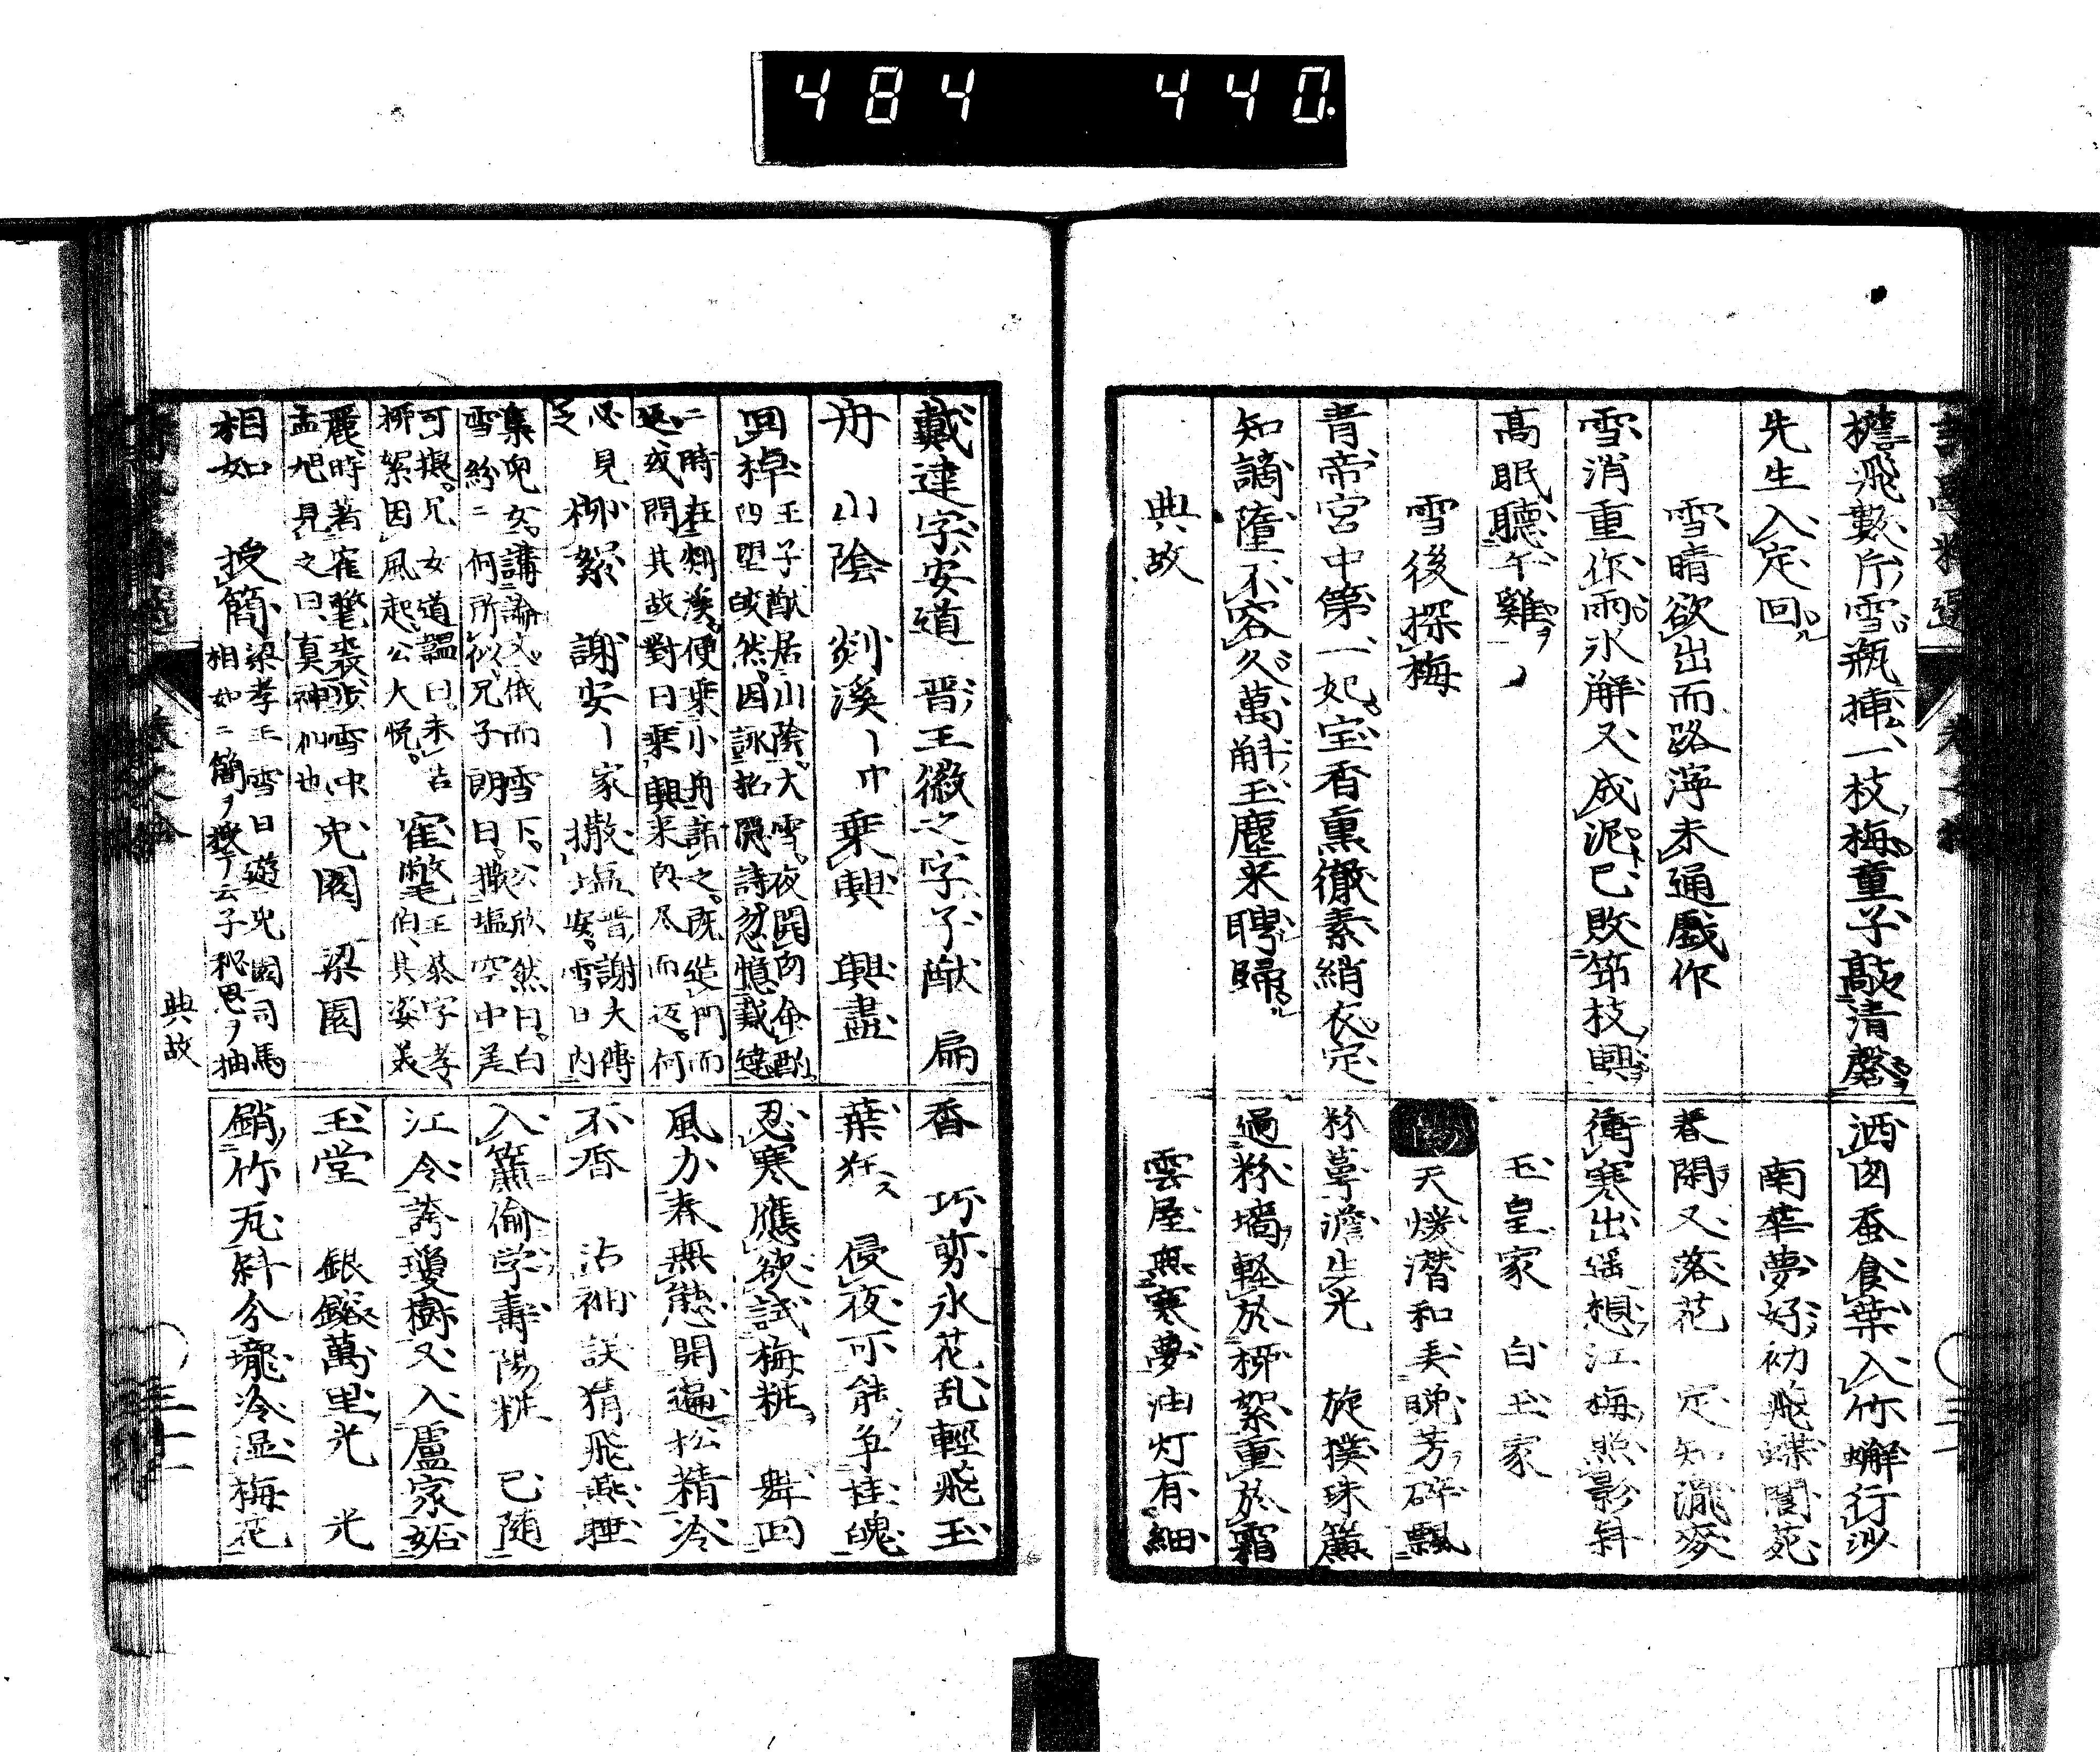 484 440.
擁飛數片雪瓶挿一枝梅童子敲清磬
先生入定回
雪晴欲出而路濘未通戲作
雪消重作雨氷觧又成泥已敗笻枝興
高眠聽午雞
雪後探梅
青帝宮中第一妃宝香熏徹素綃衣定
知謫墮不容久萬斛玉塵来聘歸
典故
洒囱蚕食葉入竹蠏行沙
南華夢好初飛蝶閬苑
春閑又落花 定知瀧麥
衝寒出遥想江梅照影斜
玉皇家 白玉家
天煐潜和羙晩芳碎飄
粉蕚澹生光 旋撲珠簾
過粉墻軽於柳絮重於霜
雲屋無寒夢油灯有細
戴逵字安道 晋王徽之字子猷 扁
舟 山陰 剡溪丨巾 乗興 興盡
回棹 王子猷居山陰大雪夜開囱命酌
四望皎然因詠招隠詩忽憶戴逵
二時在剡溪便乗小舟詣之既造門而
返或問其故對曰乗興来興尽而返何
必見 柳絮 謝安丨家 撒塩 晋謝大傅
安雪日内
集兒女講論文俄而雪下公欣然曰白
雪紛二何所似兄子朗曰撒塩空中差
可擬兄女道韞曰未若
柳絮因風起公大悦 隺氅 王恭字孝
伯其姿美
麗時著隺氅裘歩雪中
孟昶見之曰真神仙也 兎園 梁園
相如 授簡 梁孝王雪日遊兎園司馬
相如二簡ヲ授テ云子秘思ヲ抽
典故
香 巧剪氷花乱軽飛玉
葉狂ス 侵夜可能争桂魄
忍寒應欲試梅粧 舞回
風力春無態開遍松精冷
不香 沾袖誤猜飛燕睡
入簾偷学壽陽粧 已随
江令誇瓊樹又入盧家妬
玉堂 銀鎔萬里光 光
銷竹瓦斜分瓏冷湿梅花
三十一